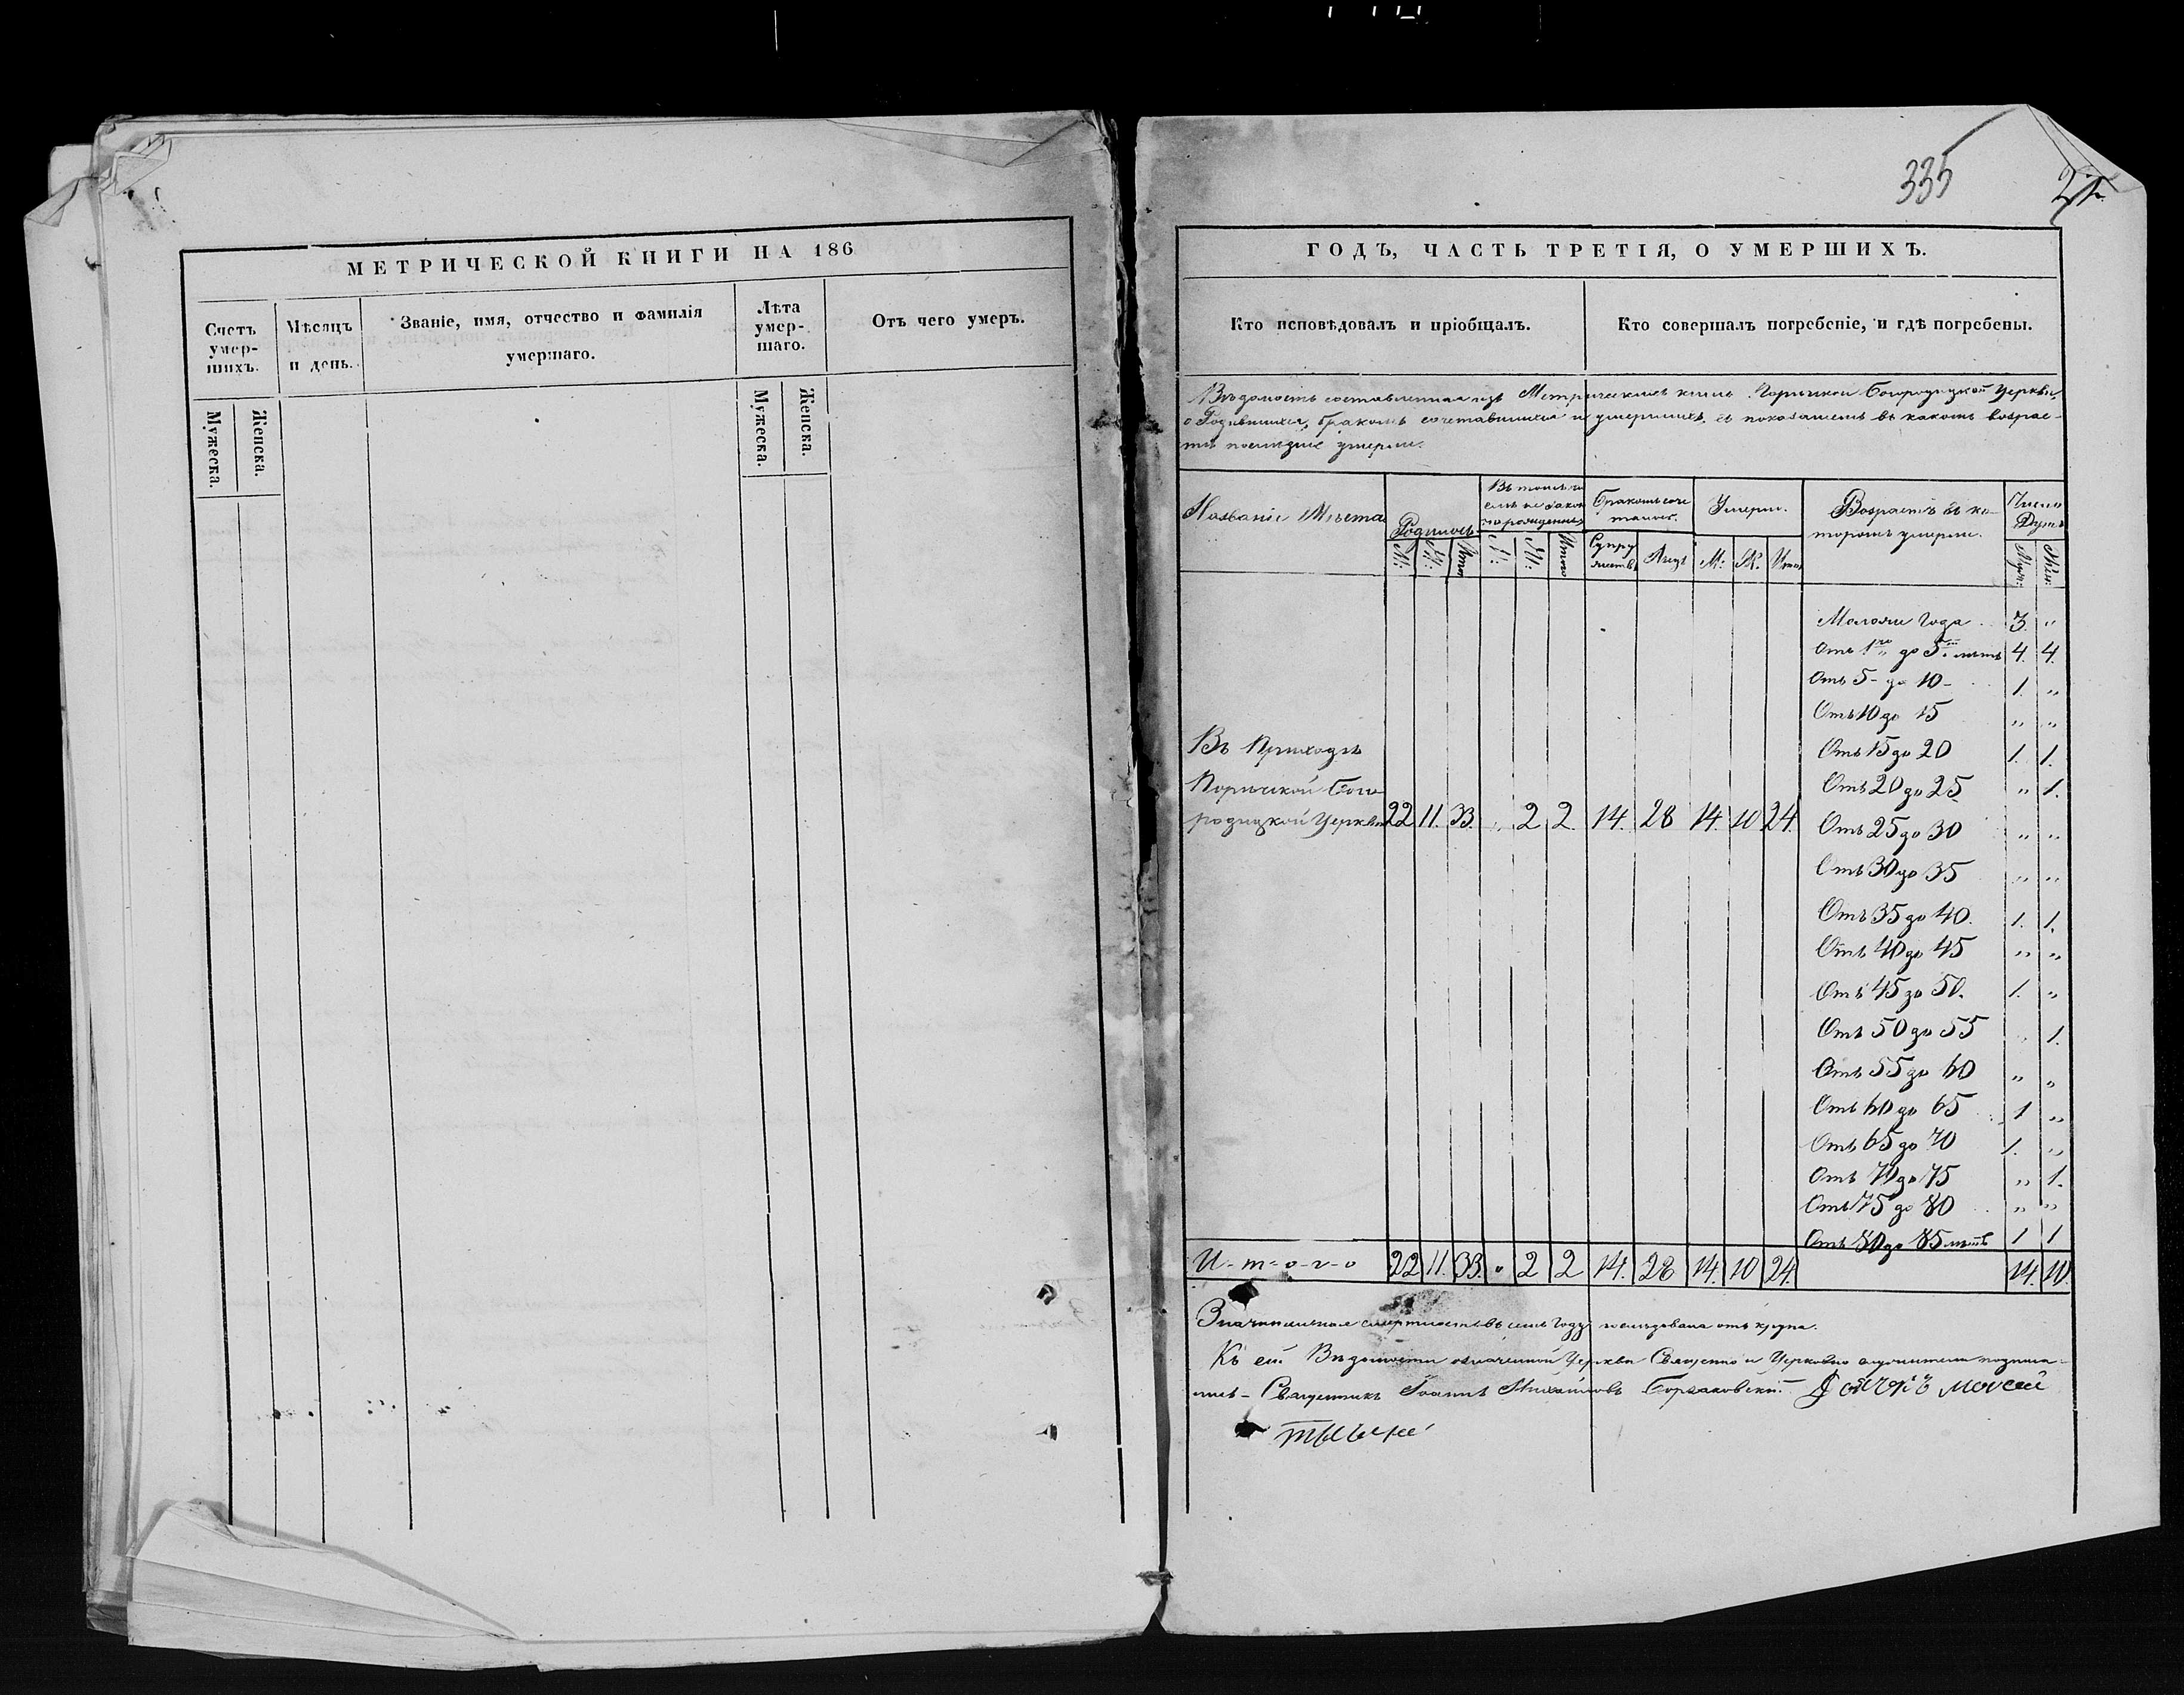 МЕТРИЧЕСКОЙ КНИГИ НА 186
Счетъ умер-шихъ.
Мѣсяцъ и день.
Званіе, имя, отчество и фамилія умершаго.
Лѣта умер-шаго.
Отъ чего умеръ.
Мужеска.
Женска.
Мужеска.
Женска.
335
ГОДЪ, ЧАСТЬ ТРЕТІЯ, О УМЕРШИХЪ.
Кто исповѣдовалъ и пріобщалъ.
Кто совершалъ погребеніе, и гдѣ погребены.
Вѣдомость составленная изъ Метрическихъ книгъ Богородицкой Церкви
о Родившихся, бракомъ сочетавшихся и умершихъ, съ показаніемъ въ какомъ возрас-
тѣ послѣдніе умерли.
Названіе Мѣста
Родилось
Въ томъ чи
слѣ незакон
но рожденных
Бракомъ соче
талось.
Умерло.
Возрастъ въ ко-
торомъ умерли.
Число
Душъ
М: Ж: Итого М: Ж: Итого Супру жествъ Лицъ М: Ж. Итого Муж: Жен:
Моложе Года 3. "
Отъ 1го до 5 лѣтъ 4. 4.
Отъ 5 - до 10 - 1. "
Отъ 10 до 15 " "
Отъ 15 до 20 1. 1.
Отъ 20 до 25 " 1.
Отъ 25 до 30 " "
Отъ 30 до 35 " "
Отъ 35 до 40. 1. 1.
Отъ 40 до 45 " "
Отъ 45 до 50. 1. "
Отъ 50 до 55 " 1.
Отъ 55 до 60 " "
Отъ 60 до 65 1 "
Отъ 65 до 70 1. "
Отъ 70 до 75 " 1.
Отъ 75 до 80 " "
Отъ 80 до 85 лѣтъ 1 1
Въ Приходѣ
Поричской Бого-
родицкой Церкви 22 11. 33. " 2 2. 14. 28 14. 10 24.
И-т-о-г-о 22 11. 33. " 2 2 14. 28 14. 10 24. 14. 10.
Значительная смертность въ семъ Году послѣдовала отъ крупа.
Къ сей Вѣдомости означенной Церкви Священно и Церковно служители подписа-
лись - Священникъ Іоаннъ Михайловъ Борзаковскій. Дячокъ Моисей